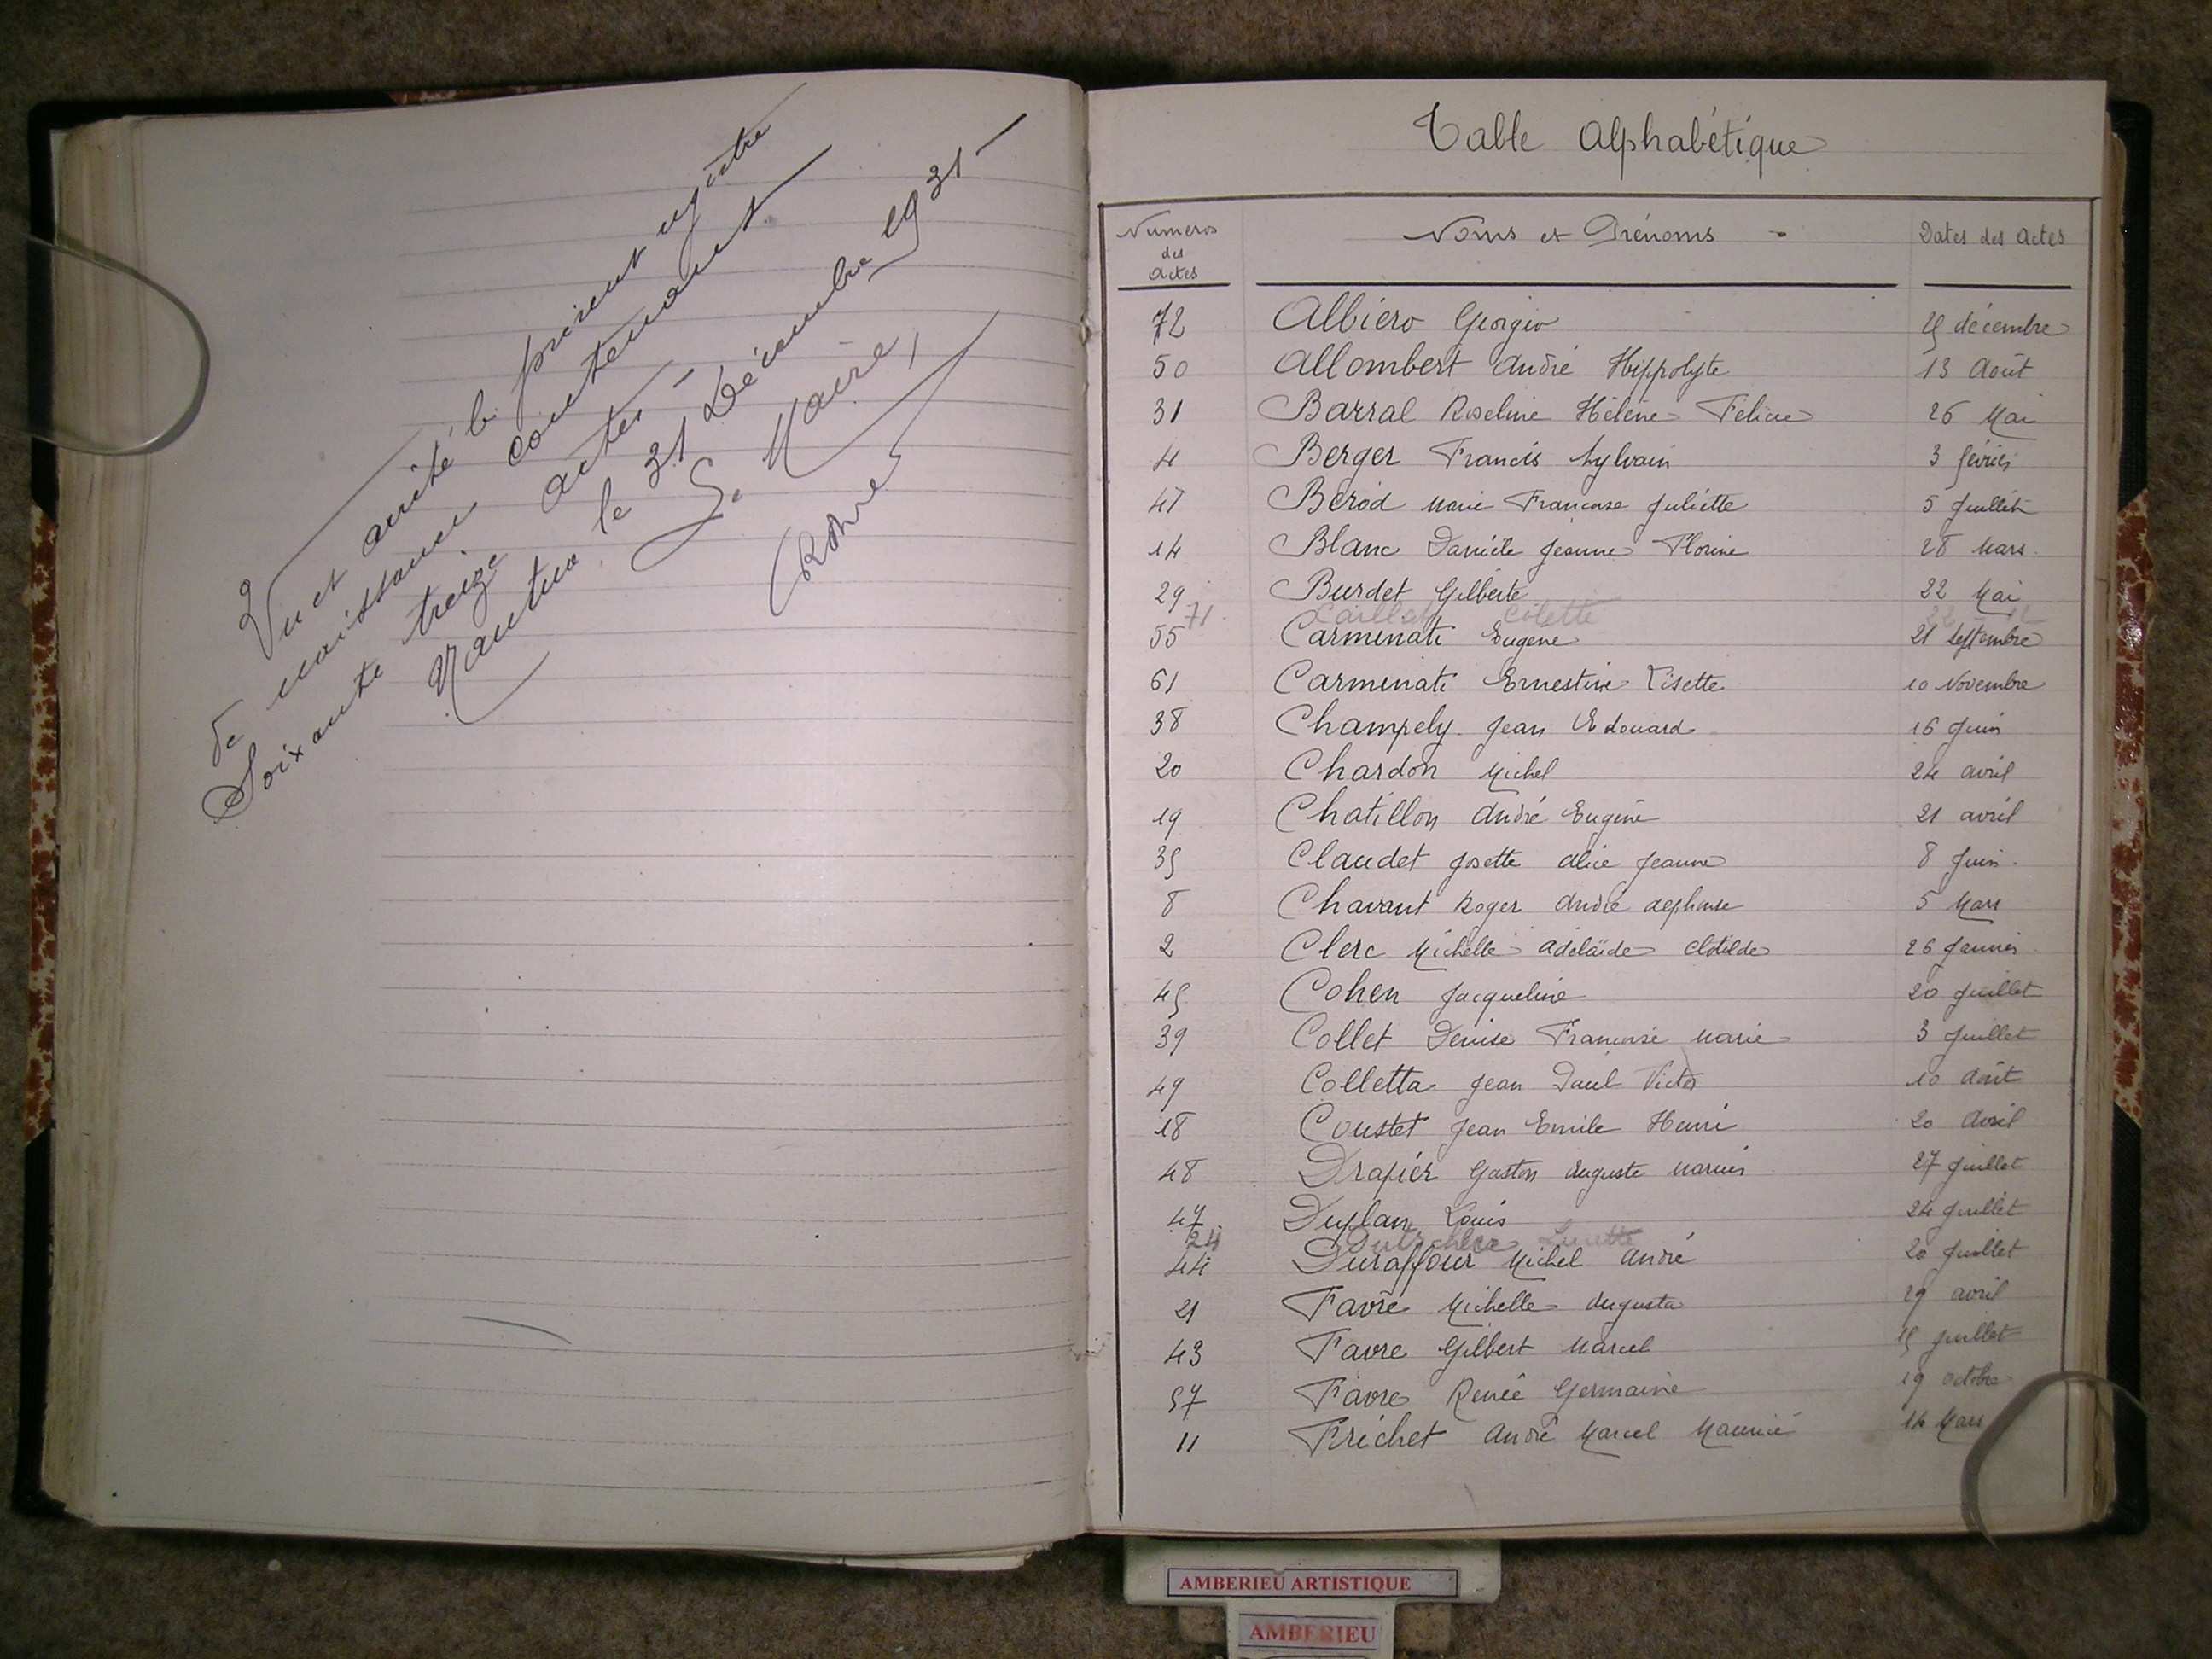 Vu et arrêté le présent registre
de naissances contenant
Soixante treize actes
Nantua le 31 Décembre 1931
Le Maire,
Table Alphabétique
Numeros des actes
Noms et Prénoms
Dates des actes
72 Albiero Giorgio 29 décembre
50 Allombert André Hippolyte 13 Août
31 Barral Roseline Hélène Félicie 26 Mai
4 Berger Francis Sylvain 3 février
41 Berod Marie Françoise Juliette 5 Juillet
14 Blanc Danièle Jeanne Florine 28 Mars
29 Burdet Gilberte 22 Mai
71 Caillat Colette
55 Carminati Eugène 21 Septembre
61 Carminati Ernestine Lisette 10 Novembre
38 Champely Jean Edouard 16 Juin
20 Chardon Michel 24 avril
19 Chatillon André Eugène 21 avril
35 Claudet Josette Alice Jeanne 8 Juin
8 Chavant Roger André Alphonse 5 Mars
2 Clerc Michelle Adélaïde Clotilde 26 Janvier
45 Cohen Jacqueline 20 Juillet
39 Collet Denise Françoise Marie 3 Juillet
49 Colletta Jean Paul Victor 10 Août
18 Coustet Jean Emile Henri 20 Avril
48 Drapier Gaston Auguste Marius 27 Juillet
47 Duplan Louis 24 Juillet
24 Lucette
44 Duraffour Michel André 20 Juillet
21 Favre Michelle Augusta 29 avril
43 Favre Gilbert Marcel 15 Juillet
57 Favre Renée Germaine 19 octobre
11 Frichet André Marcel Maurice 14 Mars
AMBERIEU ARTISTIQUE
AMBERIEU